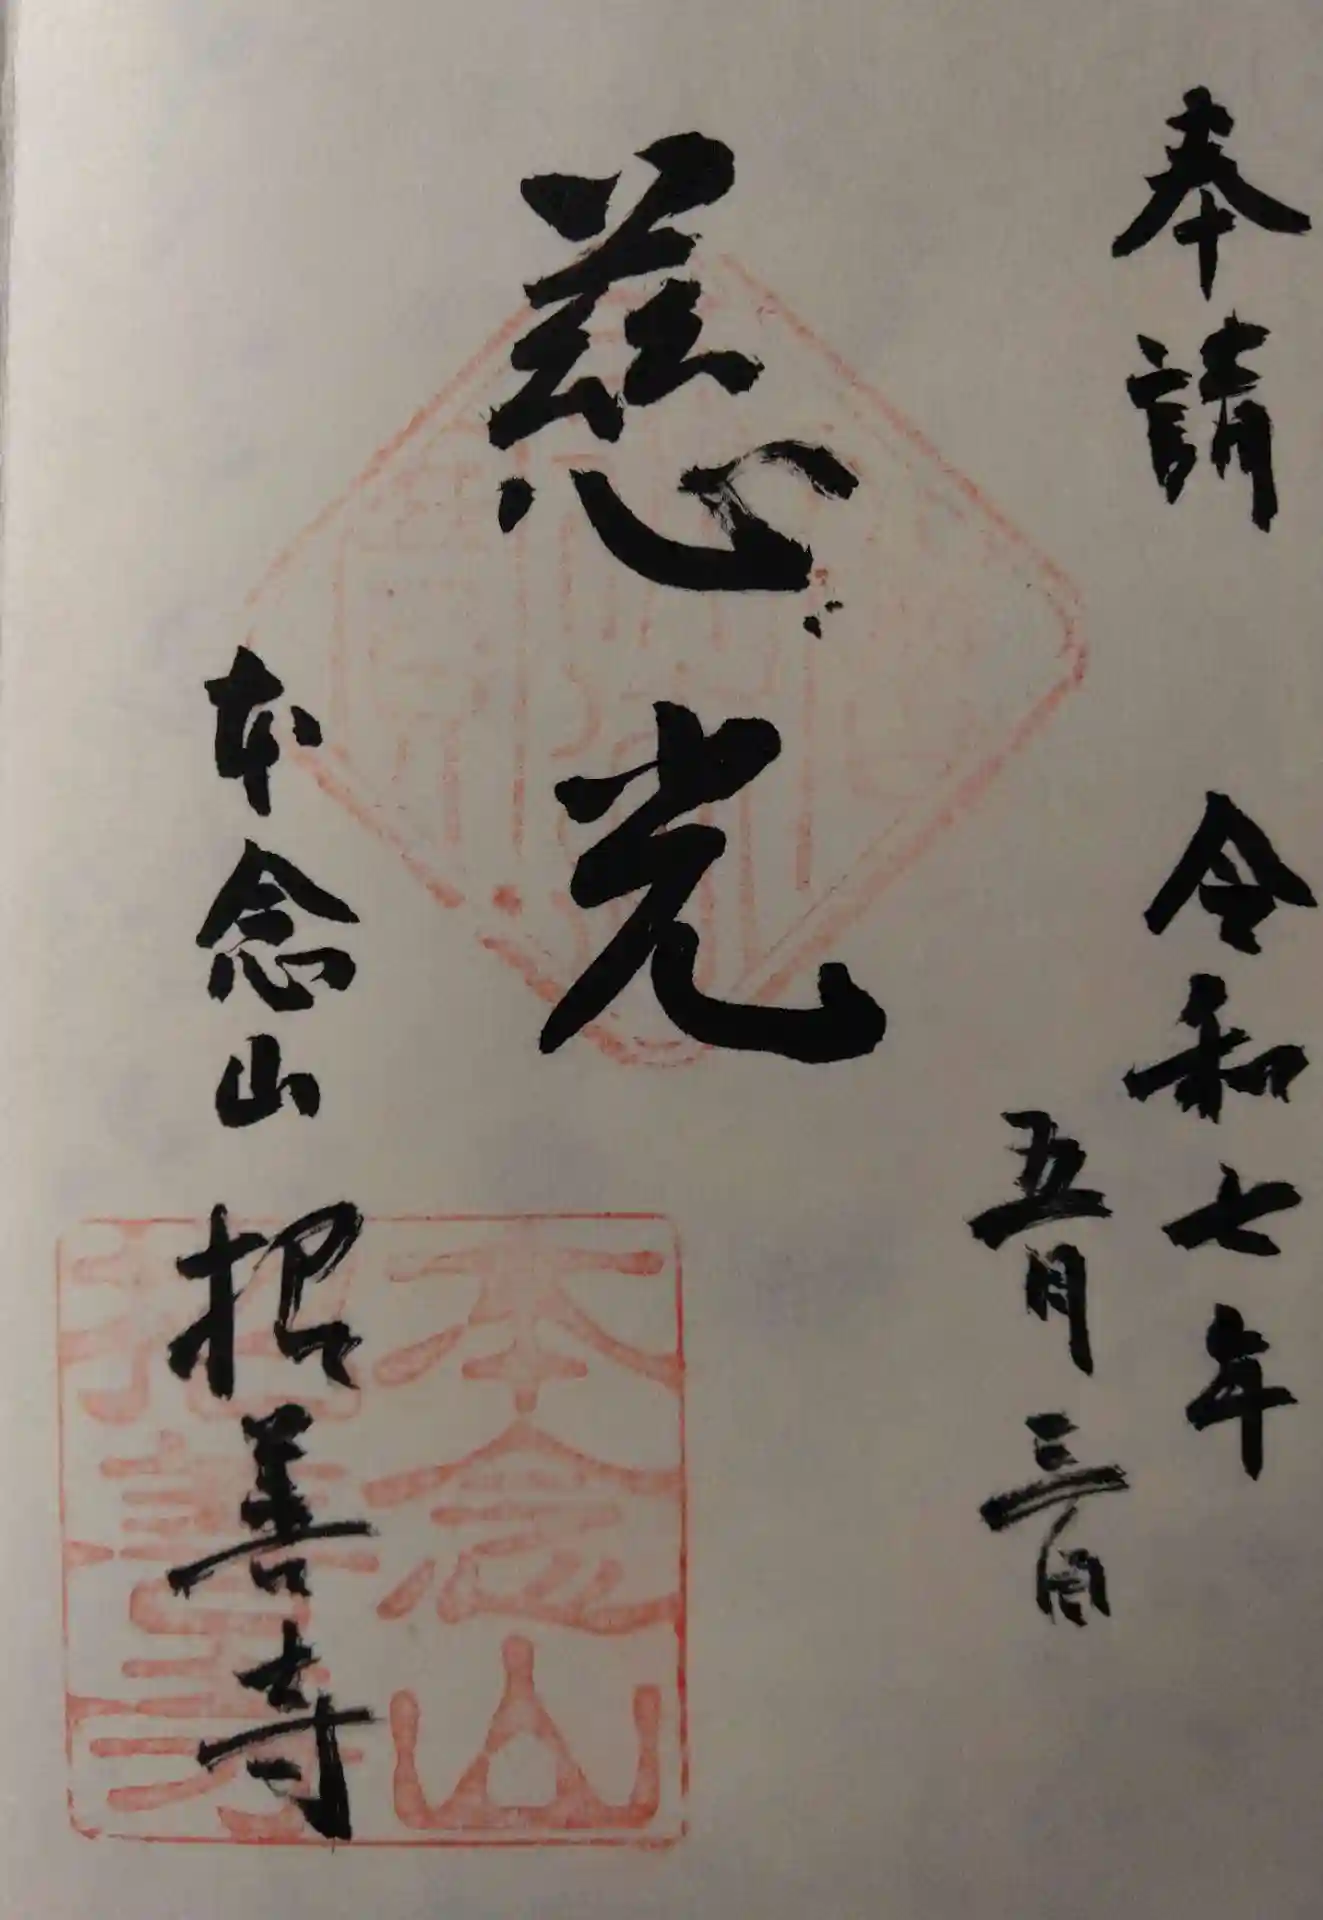 奉請 令和七年
五月三日
慈光
本念山 招善寺
本念山
招善寺